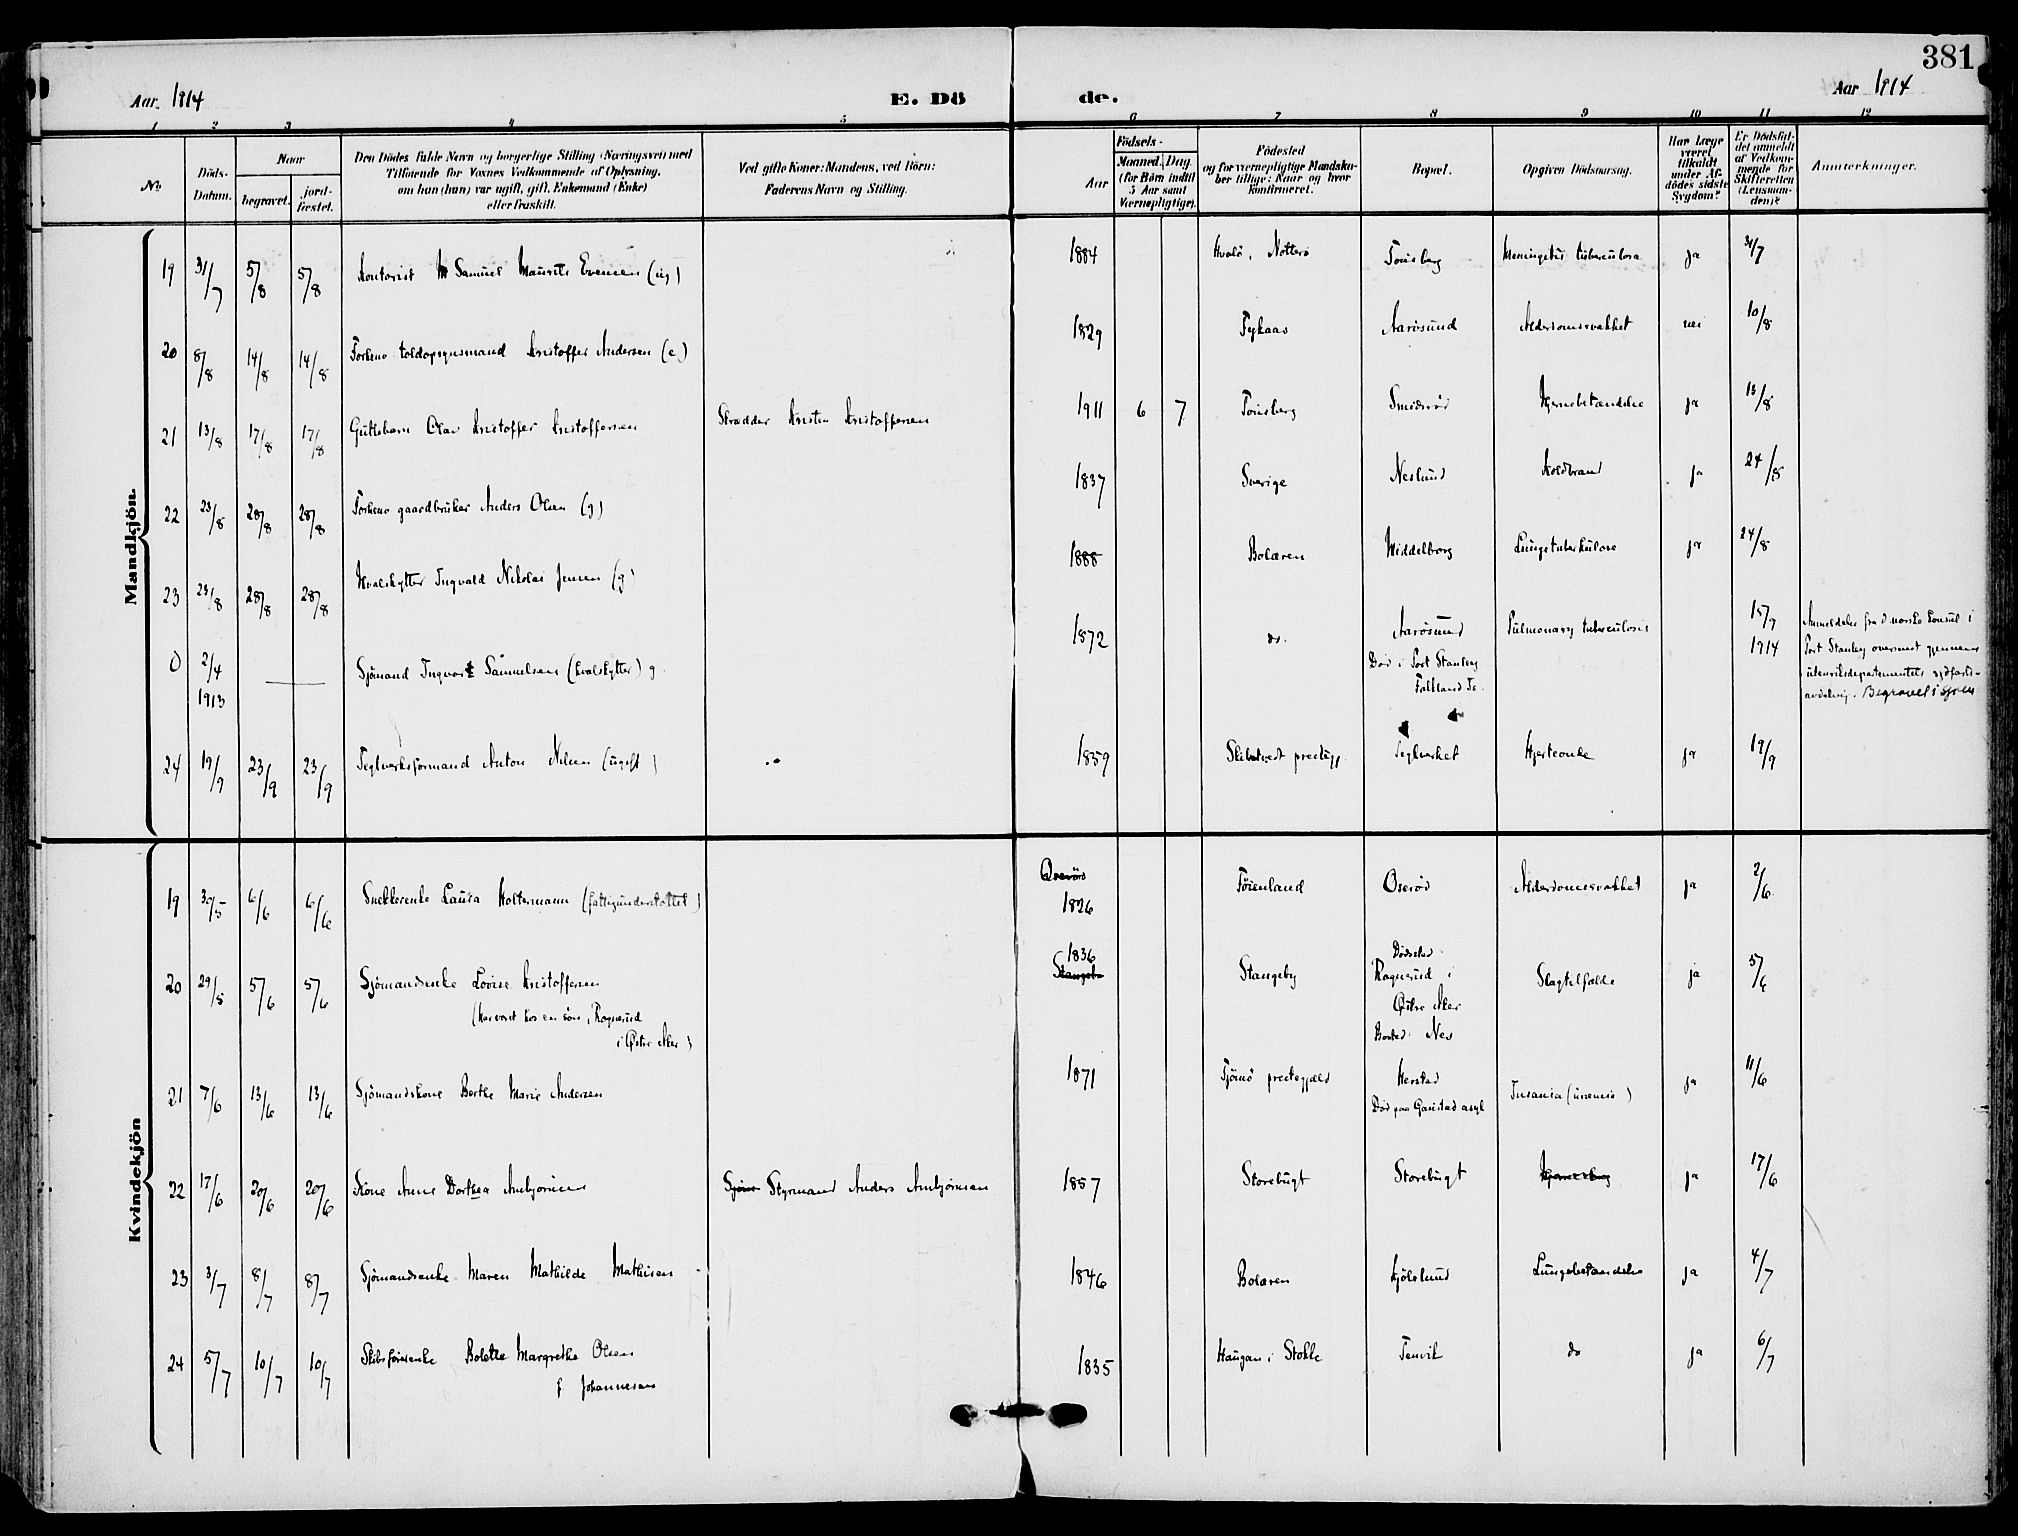 381
Aar 1914 E. Dö de. Aar 1914
1 2 3 4 5 6 7 8 9 10 11 12
No. Döds-Datum. Naar begravet. jord-fæstet. Den Dödes fulde Navn og borgerlige Stilling (Næringsvei) med Tilföiende for Voxnes Vedkommende af Oplysning, om han (hun) var ugift, gift, Enkemand (Enke) eller fraskilt. Ved gifte Koner: Mandens, ved Börn: Faderens Navn og Stilling. Födsels- Aar Maaned. Dag. (for Börn indtil 5 Aar samt Værnepligtige). Födested og for værnepligtige Mandska-ber tillige: Naar og hvor konfirmeret. Bopæl. Opgiven Dödsaarsag. Har Læge været tilkaldt under Af-dödes sidste Sygdom? Er Dödsfal-det anmeldt af Vedkom-mende for Skifteretten (Lensman-den)? Anmerkninger.
Mandkjön.
19 31/7 5/8 5/8 Kontorist Samuel Maurits Evensen (ug) 1884 Hvalö, Nötterö Tönsberg Meningitis tuberculosa ja 31/7
20 8/8 14/8 14/8 Forhenv toldopsynsmand Kristoffer Andersen (e) 1829 Aarösund Alderdomssvakhet nei 10/8
21 13/8 17/8 17/8 Guttebarn Olav Kristoffer Kristoffersen Skrædder Kristen Kristoffersen 1911 6 7 Tönsberg Smidsröd Hjernebetændelse ja 13/8
22 23/8 28/8 28/8 Forhenv gaardbruker Anders Olsen (g) 1837 Sverige Neslund Koldbrand ja 24/8
23 23/8 28/8 28/8 Hvalskytter Ingvald Nikolai Jensen (g) 1888 Bolæren Middelborg Lungetuberkulose ja 24/8
0 2/4 1913 — Sjömand Ingvart Samuelsen (hvalskytter) g. 1872 do. Aarösund Död i Port Stanley Falkland Is. Pulmonary tuberculosis 15/7 1914 Anmeldelse fra d norske konsul i Port Stanley oversendt gjennem utenriksdepartementets sjöfarts-avdeling. Begravet i Sjöen
24 19/9 23/9 23/9 Teglverksformand Anton Nilsen (ugift) 1859 Skibtvedt prestegj. Teglverket Hjerteonde ja 19/9
Kvindekjön
19 30/5 6/6 6/6 Snekkerenke Laura Holtermann (fattigunderstöttet) Oseröd 1826 Föienland Oseröd Alderdomssvakhet ja 2/6
20 29/5 5/6 5/6 Sjömandsenke Lovise Kristoffersen (har været hos en sön, Rognerud i Östre Aker) 1836 Stangeby Stangeby Dödssted: Rognerud i Östre Aker Bosted: Nes Slagtilfælde ja 5/6
21 7/6 13/6 13/6 Sjömandskone Berthe Marie Andersen 1871 Tjömö prestegjæld Herstad Död paa Gaustad asyl Insania (uræmia) ja 11/6
22 17/6 20/6 20/6 Kone Anne Dorthea Ambjörnsen Sjöm Styrmand Anders Ambjörnsen 1857 Storebugt Storebugt ja 17/6
23 3/7 8/7 8/7 Sjömandsenke Maren Mathilde Mathisen 1846 Bolæren Kjölelund Lungebetændelse ja 4/7
24 5/7 10/7 10/7 Skibsförerenke Bolette Margrethe Olsen f Johannesen 1835 Haugan i Stokke Tenvik do ja 6/7